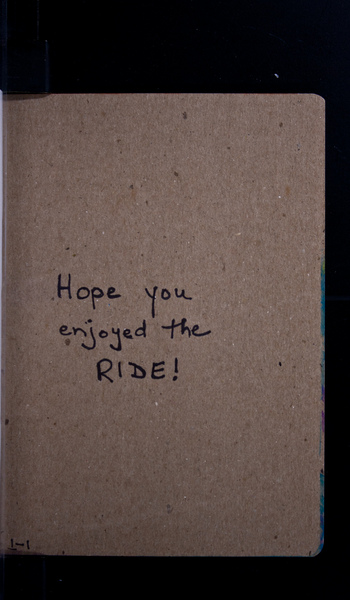 Hope you
enjoyed the
RIDE!
1-1